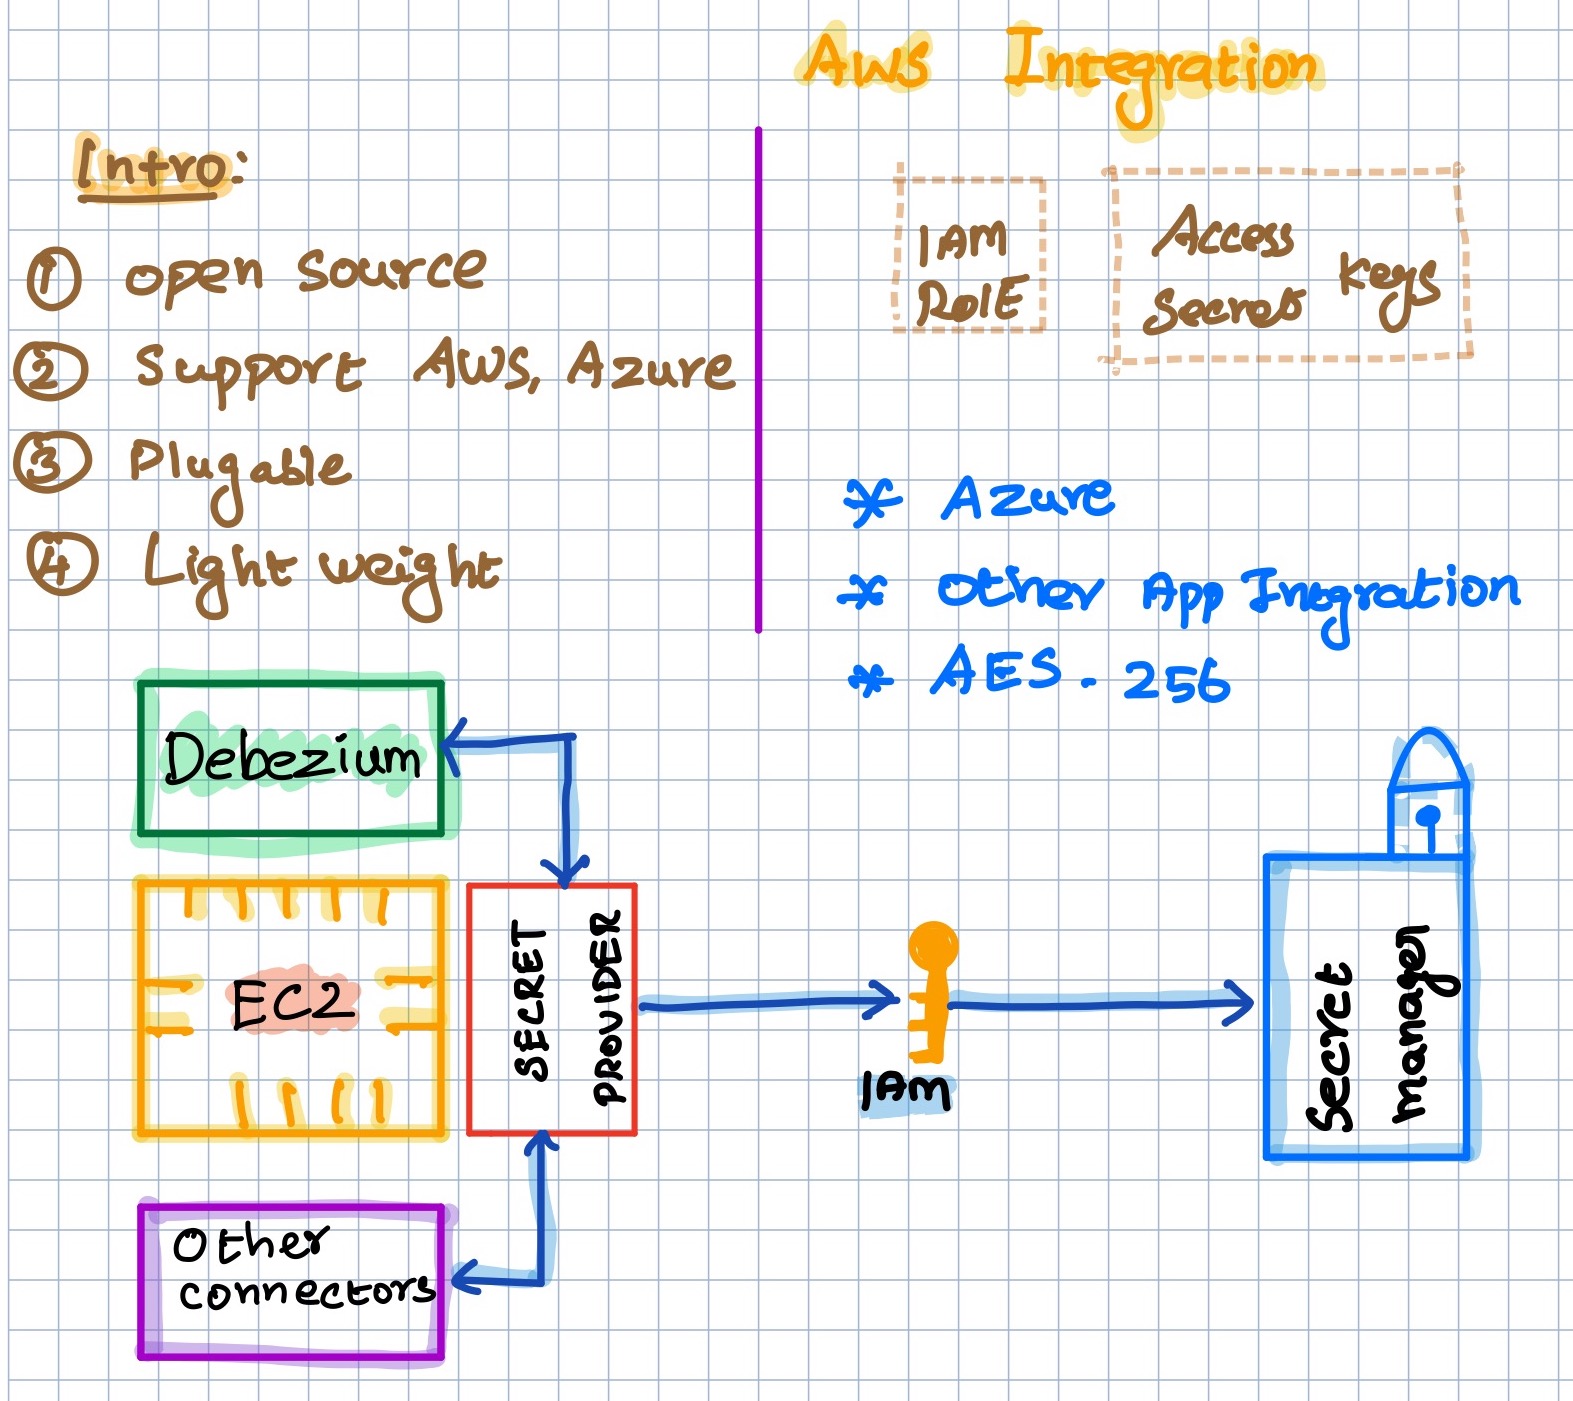 AWS Integration
Intro:
① open source
② Support AWS, Azure
③ Plugable
④ Light weight
IAM
ROlE
Access
Secret Keys
* Azure
* Other App Integration
* AES - 256
Debezium
EC2
SECRET
PROVIDER
Other
connectors
IAM
Secret
manager